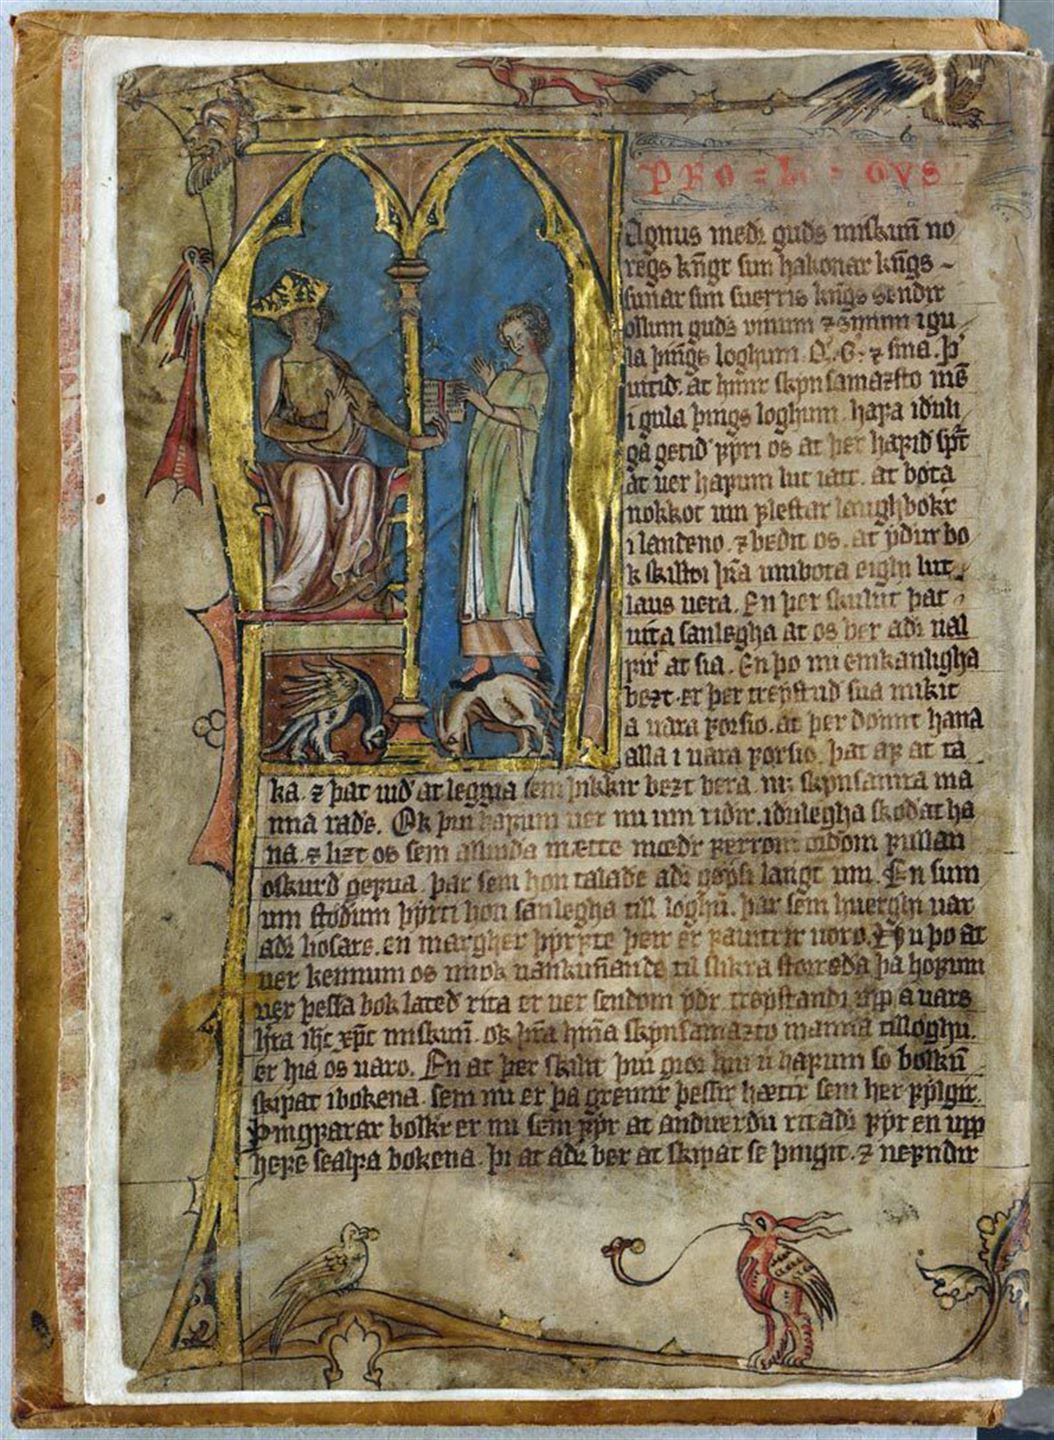 PRO=LO=GVS
Agnus medr guds miskun no
regs kngr sun hakonar kngs
sunar sun suerris kngs sendir
ollum guds vinum ⁊ sinum i gu
la þings loghum Q. G. ⁊ sina. þ
uitid. at hinir skynsamazsto me
i gula þings loghum. hafa iduli
ga getid fyri os at þer hafid spt
at uer hafum lut iatt. at bøta
nokkot um flestar laughbøkr
i landeno. ⁊ bedit os. at ydur bo
k skilldi hna umbota eighi lut
laus uera. En þer skulut þat
uita sanlegha at os ber adr ual
fir at sia. En þo nu einkanligha
bezt. er þer trøystud sua mikit
a uara forsio. at þer dømit hana
alla i uara forsio. þat af at ta
ka. ⁊ þat uid at leggia sem þikkir bezt bera. nr skynsamra ma
nna rade. Ok þui hafum uer nu um ridir. idulegha skodat ha
na. ⁊ lizt os sem allmida mætte mœdr fullan
oskurd gefua. þar sem hon talade adr gøysi langt um. En sum
um stødum þyrti hon sanlegha till loghu. þar sem huerghi uar
adr liosare. en margher þyrfte þeir er fauitrir uoro. Nu þo at
uer kennum os miok uankunnande til slikra storreda þa hofum
uer þessa bok lated rita er uer sendom ydr trøystandi upp a uars
hra ihc xpc miskun. ok hna hina skynsamazto manna till loghu.
er hia os uaro. En at þer skilit þui giør hui u hafum so bolkū
skipat i bokena. sem nu er þa greinir þessir hættir sem her fylgir.
þingfarar bolkr er nu sem fyr at anduerdu ritadr fyr en upp
hefe sealfa bokena. þi at adr ber at skipat se þingit. ⁊ nefndir